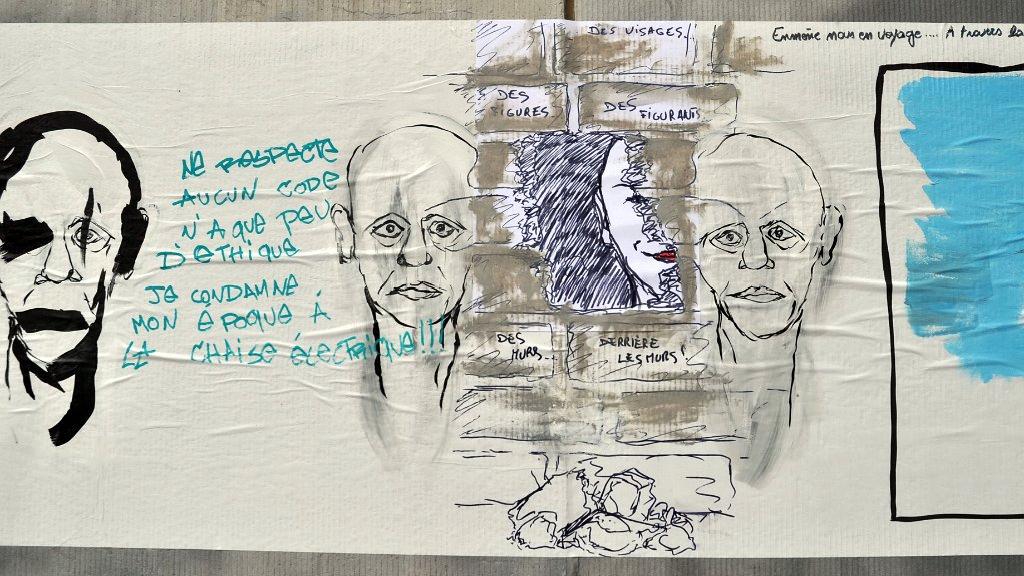 DES VISAGES...
Emmène mon en voyage.... A travers la
DES
FIGURES
DES
FIGURANTS
NE RESPECTE
AUCUN CODE
N'A QUE PEU
D'ETHIQUE
JE CONDAMNE
MON EPOQUE À
LA CHAISE ÉLECTRIQUE!!!
DES
MURS...
DERRIÈRE
LES MURS!